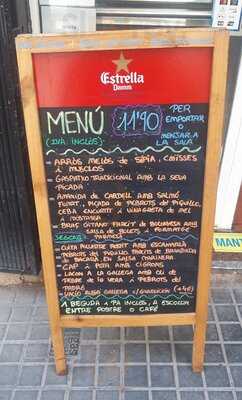 Estrella
Damm
MENÚ
(IVA INCLÒS)
11'90
PER
EMPORTAR
O
MENJAR A
LA SALA
- ARRÒS MELÓS DE SÍPIA,
I MUSCLOS
- GASPATXO TRADICIONAL AMB LA SEVA
PICADA
- AMANIDA DE CABDELL AMB SALMÓ
FUMAT, PICADA DE PEBROTS DEL PIQUILLO,
CEBA ENVINAT I VINAGRETA DE MEL
I MOSTASSA
- BRAÇ GITANO FARCIT DE BOLONYESA AMB
SALSA DE BOLETS I FORMATGE
SEGONS
- CUIXA POLLASTRE ROSTIT AMB ESCAMARLÀ
- PEBROTS DEL PIQUILLO FARCITS DE BRANDADA
DE BACALLÀ EN SALSA MARINERA
- CAP I POTA AMB CIGRONS
- LACÓN A LA GALLEGA AMB OLI DE
PEBRE DE LA VERA I PEBROTS DEL
PADRÓN
1 BEGUDA I PA INCLÒS, A ESCOLLIR
ENTRE POSTRE O CAFÈ
MANTI